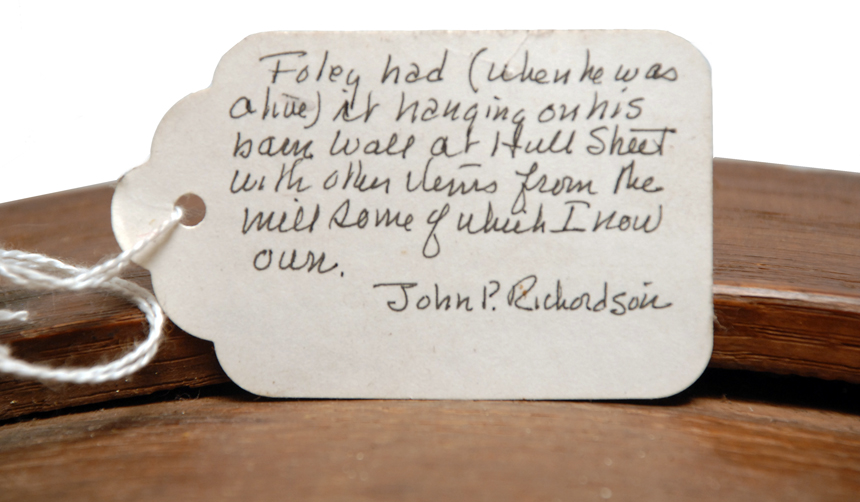 Foley had (when he was
alive) it hanging on his
barn wall at Hull Street
with other items from the
mill some of which I now
own.
John P. Richardson